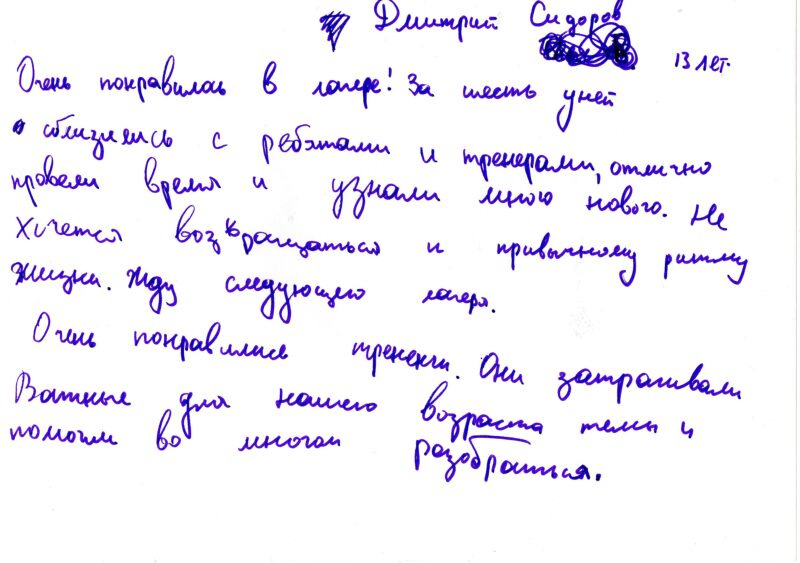 Дмитрий Сидоров
13 лет.
Очень понравилось в лагере! За шесть дней
сблизились с ребятами и тренерами, отлично
провели время и узнали много нового. Не
хочется возвращаться к привычному ритму
жизни. Жду следующего лагеря.
Очень понравились тренинги. Они затрагивали
Важные для нашего возраста темы и
помогли во многом разобраться.